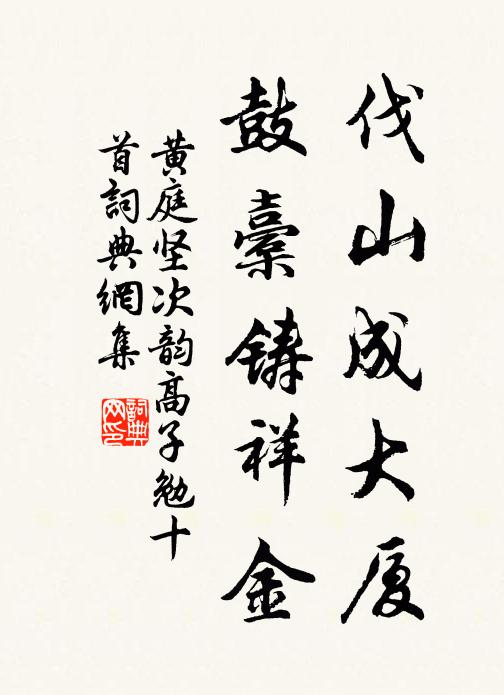 伐山成大厦
鼓橐铸祥金
黄庭坚次韵高子勉十
首詞典網集
詞典
网印